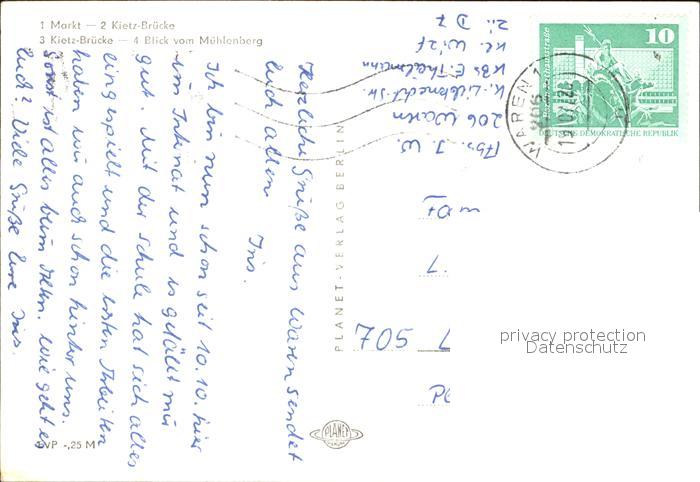 1 Markt — 2 Kietz-Brücke
3 Kietz-Brücke — 4 Blick vom Mühlenberg
Herzliche Grüße aus Waren sendet
Euch allen Ins.
Ich bin nun schon seit 10.10. hier
im Internat und es gefällt mir
gut. Mit der Schule hat sich alles
eingespielt und die ersten Arbeiten
haben wir auch schon hinter uns.
Sonst ist alles beim alten. Wie geht es
Euch? Viele Grüße Eure Ins.
EVP -,25 M
PLANET-VERLAG BERLIN
PLANET
Abs. I. W.
206 Waren
K. Liebknecht-Str.
KBS E. Thälmann
Kl. W 12 f
Zi. D 7
WAREN 1
206
10
DEUTSCHE DEMOKRATISCHE REPUBLIK
7
507
privacy protection
Datenschutz